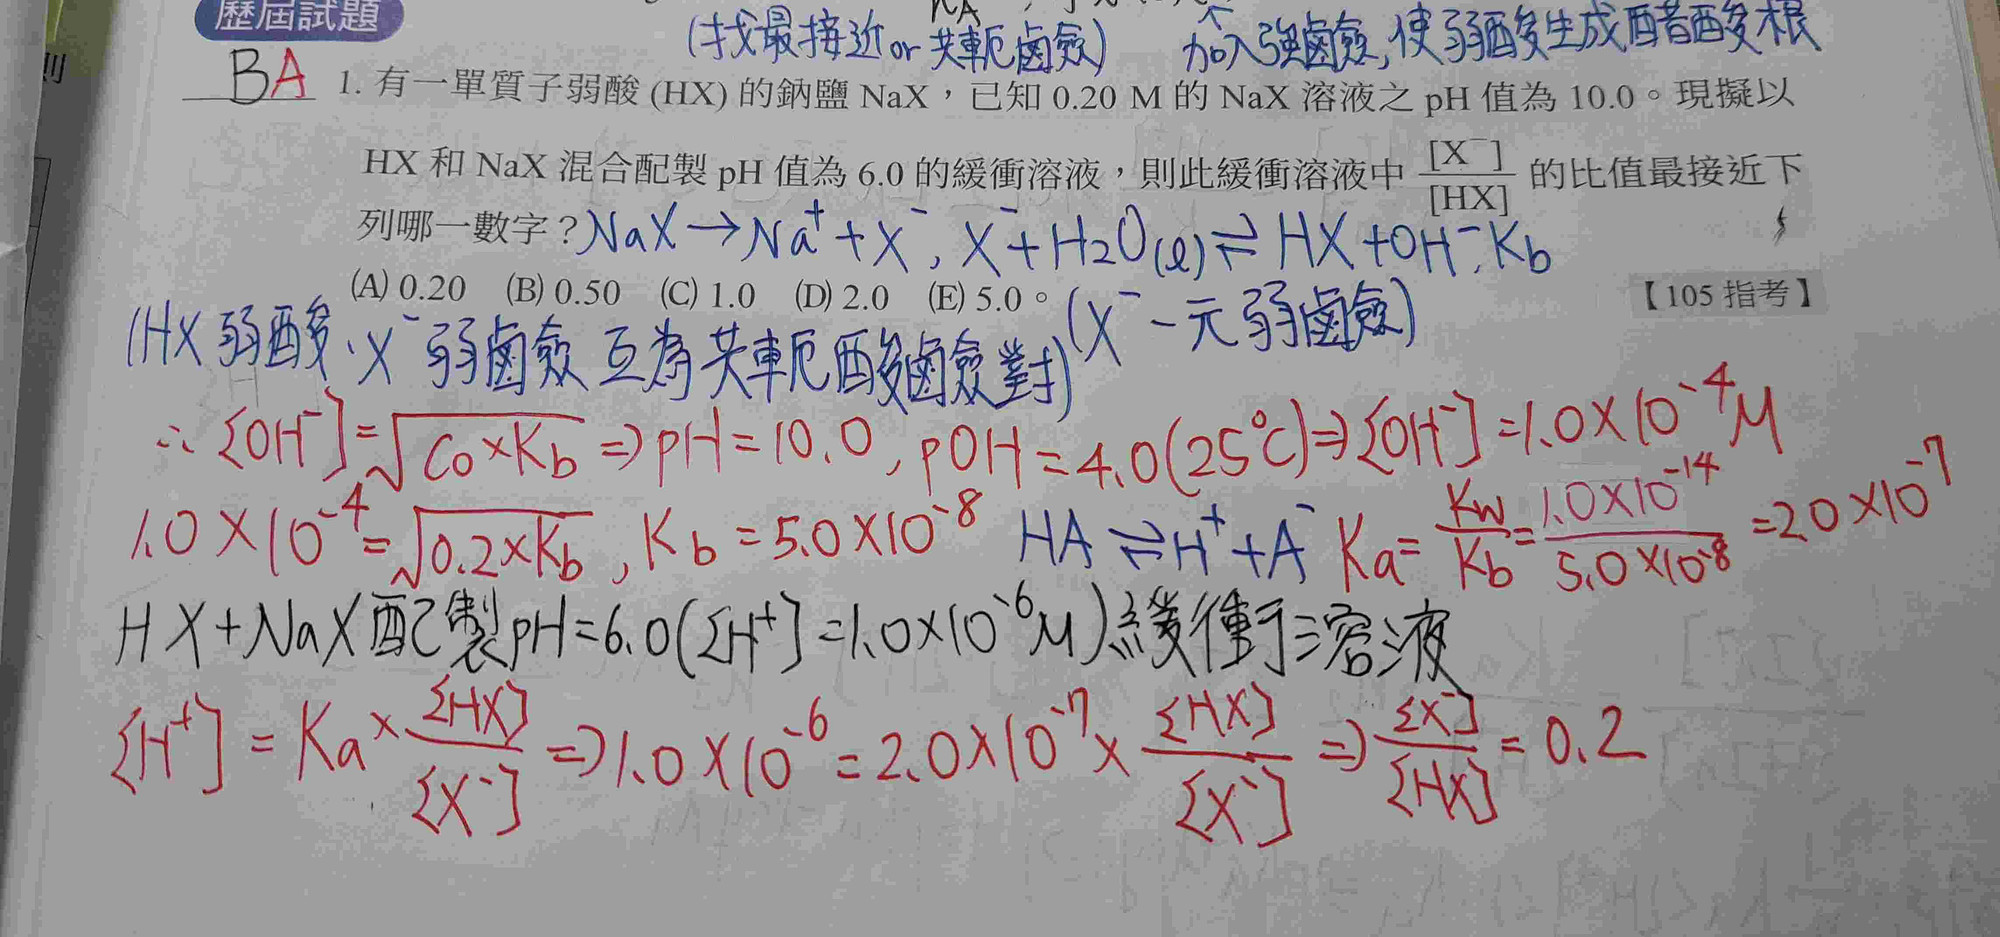 歷屆試題
(找最接近or共軛鹵鹼) 加入強鹵鹼,使弱酸生成醋酸根
BA 1. 有一單質子弱酸 (HX) 的鈉鹽 NaX,已知 0.20 M 的 NaX 溶液之 pH 值為 10.0。現擬以
HX 和 NaX 混合配製 pH 值為 6.0 的緩衝溶液,則此緩衝溶液中 [X⁻]/[HX] 的比值最接近下
列哪一數字?NaX→Na⁺+X⁻, X⁻+H2O(l)⇌HX+OH⁻,Kb
(A) 0.20 (B) 0.50 (C) 1.0 (D) 2.0 (E) 5.0。(X⁻一元弱鹵鹼) 【105 指考】
(HX弱酸、X⁻弱鹵鹼互為共軛酸鹵鹼對)
∴[OH⁻]=√(C₀×Kb)⇒pH=10.0, pOH=4.0(25℃)⇒[OH⁻]=1.0×10⁻⁴M
1.0×10⁻⁴=√(0.2×Kb), Kb=5.0×10⁻⁸ HA⇌H⁺+A⁻ Ka=Kw/Kb=1.0×10⁻¹⁴/5.0×10⁻⁸=2.0×10⁻⁷
HX+NaX配製pH=6.0([H⁺]=1.0×10⁻⁶M)緩衝溶液
[H⁺]=Ka×[HX]/[X⁻]⇒1.0×10⁻⁶=2.0×10⁻⁷×[HX]/[X⁻]⇒[X⁻]/[HX]=0.2